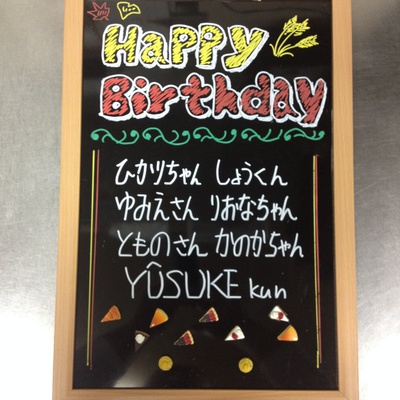 Happy
Birthday
ひかりちゃん しょうくん
ゆみえさん りおなちゃん
とものさん かのかちゃん
YÛSUKE kun